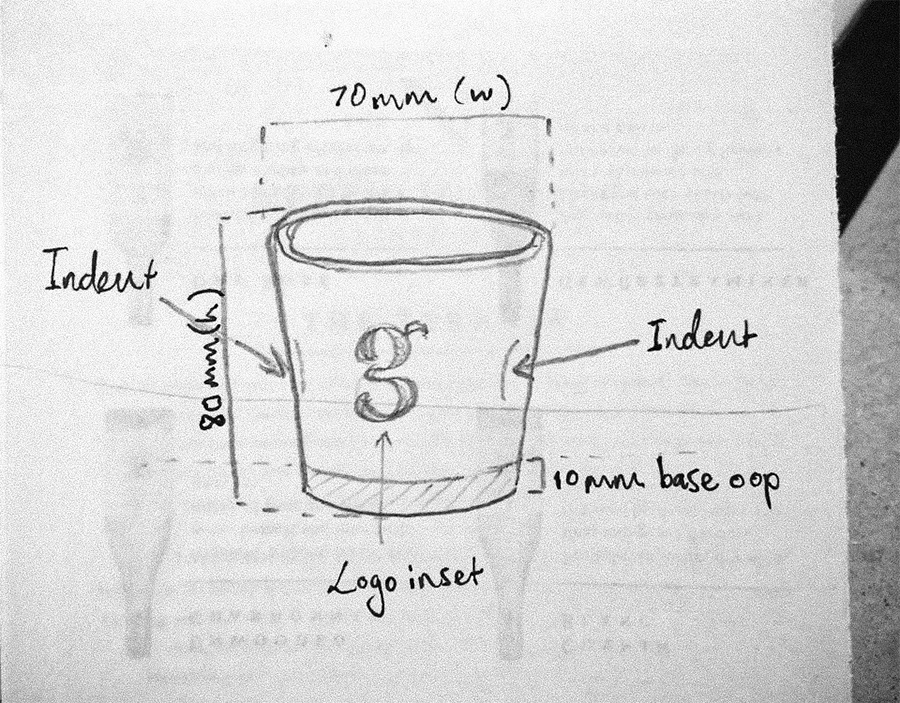 70mm (w)
Indent
80mm(h)
g
Indent
10mm base oop
Logo inset